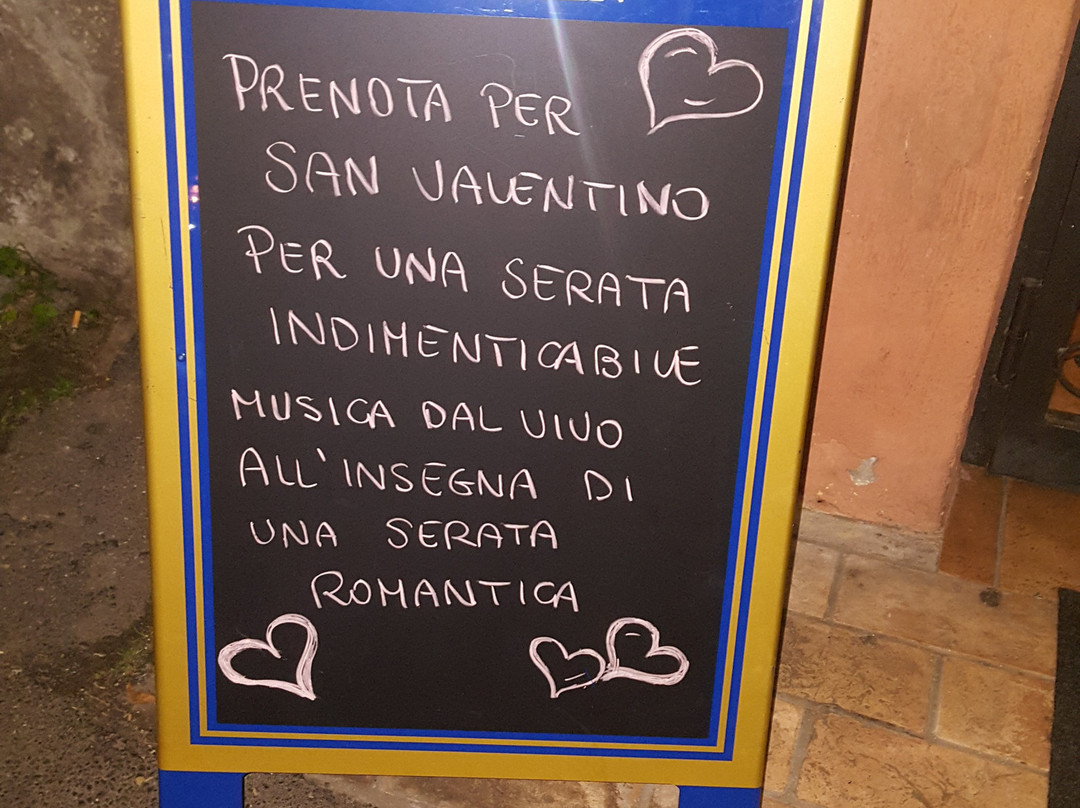 PRENOTA PER
SAN VALENTINO
PER UNA SERATA
INDIMENTICABILE
MUSICA DAL VIVO
ALL'INSEGNA DI
UNA SERATA
ROMANTICA